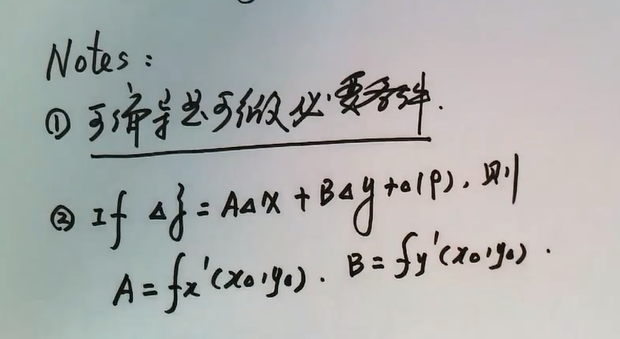 Notes:
① 可偏导是可微必要条件.
② If Δz = AΔx + BΔy + o(ρ), 则
A = fx'(x₀,y₀). B = fy'(x₀,y₀).